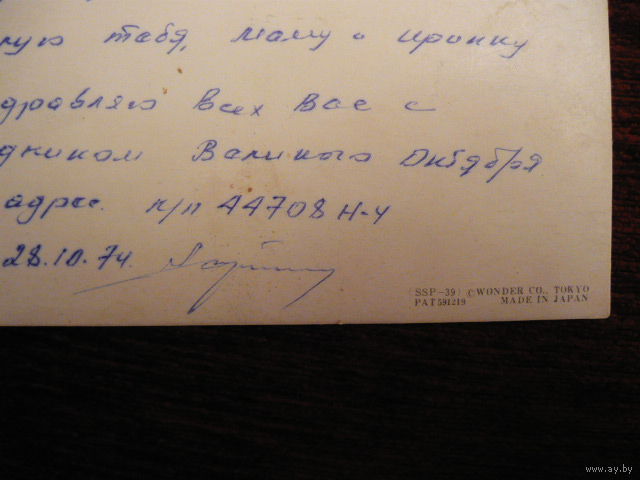 тебя, маму и Иринку
дравляю всех вас с
дником Великого Октября
адрес. п/п 44708 Н-4
28.10.74.
(SSP-39) © WONDER CO., TOKYO
PAT 591219 MADE IN JAPAN
www.ay.by